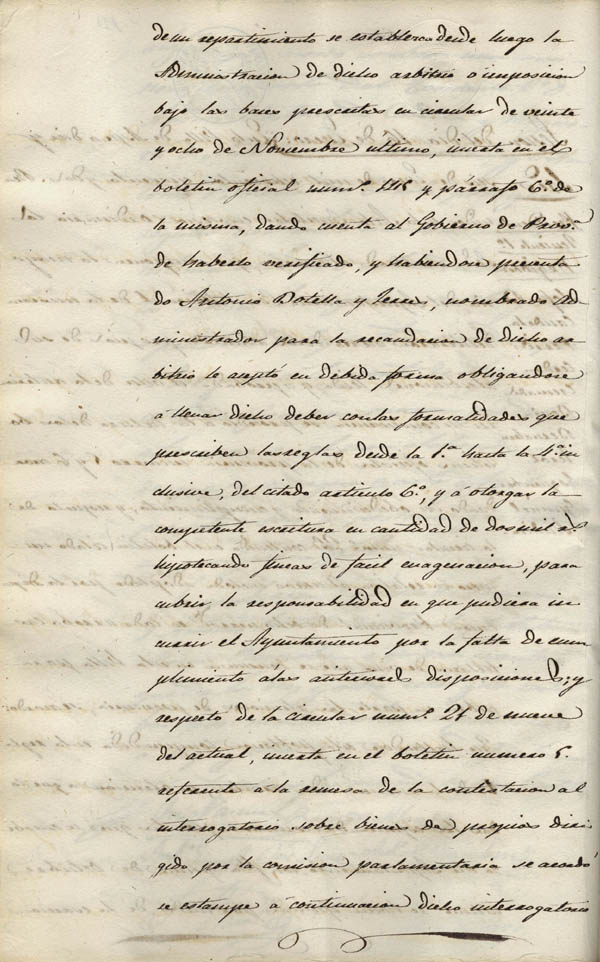 de un repartimiento se establezca desde luego la
Administracion de dicho arbitrio o imposicion
bajo las bases prescritas en circular de veinte
y ocho de Noviembre ultimo, inserta en el
boletin oficial num.º 145 y párrafo 6.º de
la misma, dando cuenta al Gobierno de Prov.ª
de haberlo verificado, y habiendose presenta
do Antonio Botella y Terres, nombrado Ad-
ministrador para la recaudacion de dicho ar
bitrio lo aceptó en debida forma obligandose
á llenar dicho deber con las formalidades que
prescriben las reglas desde la 1.ª hasta la 4.ª in
clusive, del citado articulo 6.º, y á otorgar la
competente escritura en cantidad de dos mil r.s
hipotecando fincas de facil enagenacion, para
cubrir la responsabilidad en que pudiera in
currir el Ayuntamiento por la falta de cum
plimiento á las anteriores disposiciones; y
respeto de la circular num.º 21 de nueve
del actual, inserta en el boletin numero 5.
referente a la remesa de la contestacion al
interrogatorio sobre bienes de propios diri
gido por la comision parlamentaria se acordó
se estampe á continuacion dicho interrogatorio